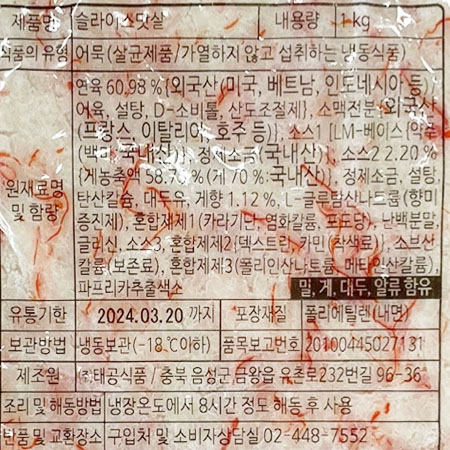 제품명 슬라이스맛살 내용량 1 kg
식품의 유형 어묵(살균제품/가열하지 않고 섭취하는 냉동식품)
원재료명 및 함량
연육 60.98 %{외국산(미국, 베트남, 인도네시아 등)
어육, 설탕, D-소비톨, 산도조절제}, 소맥전분{외국산
(프랑스, 이탈리아, 호주 등)}, 소스1 [LM-베이스
(백미:국내산)}, 정제소금(국내산)], 소스2 2.20 %
{게농축액 58.75 %(게 70 %:국내산)}, 정제소금, 설탕,
탄산칼슘, 대두유, 게향 1.12 %, L-글루탐산나트륨(향미
증진제), 혼합제제1(카라기난, 염화칼륨, 포도당), 난백분말,
글리신, 소스3, 혼합제제2{덱스트린, 카민(착색료)}, 소브산
칼륨(보존료), 혼합제제3(폴리인산나트륨, 메타인산칼륨),
파프리카추출색소 밀, 게, 대두, 알류 함유
유통기한 2024.03.20 까지 포장재질 폴리에틸렌(내면)
보관방법 냉동보관(-18 ℃이하) 품목보고번호 20100445027131
제조원 ㈜태공식품/충북 음성군 금왕읍 유촌로232번길 96-36
조리 및 해동방법 냉장온도에서 8시간 정도 해동 후 사용
반품 및 교환장소 구입처 및 소비자상담실 02-448-7552